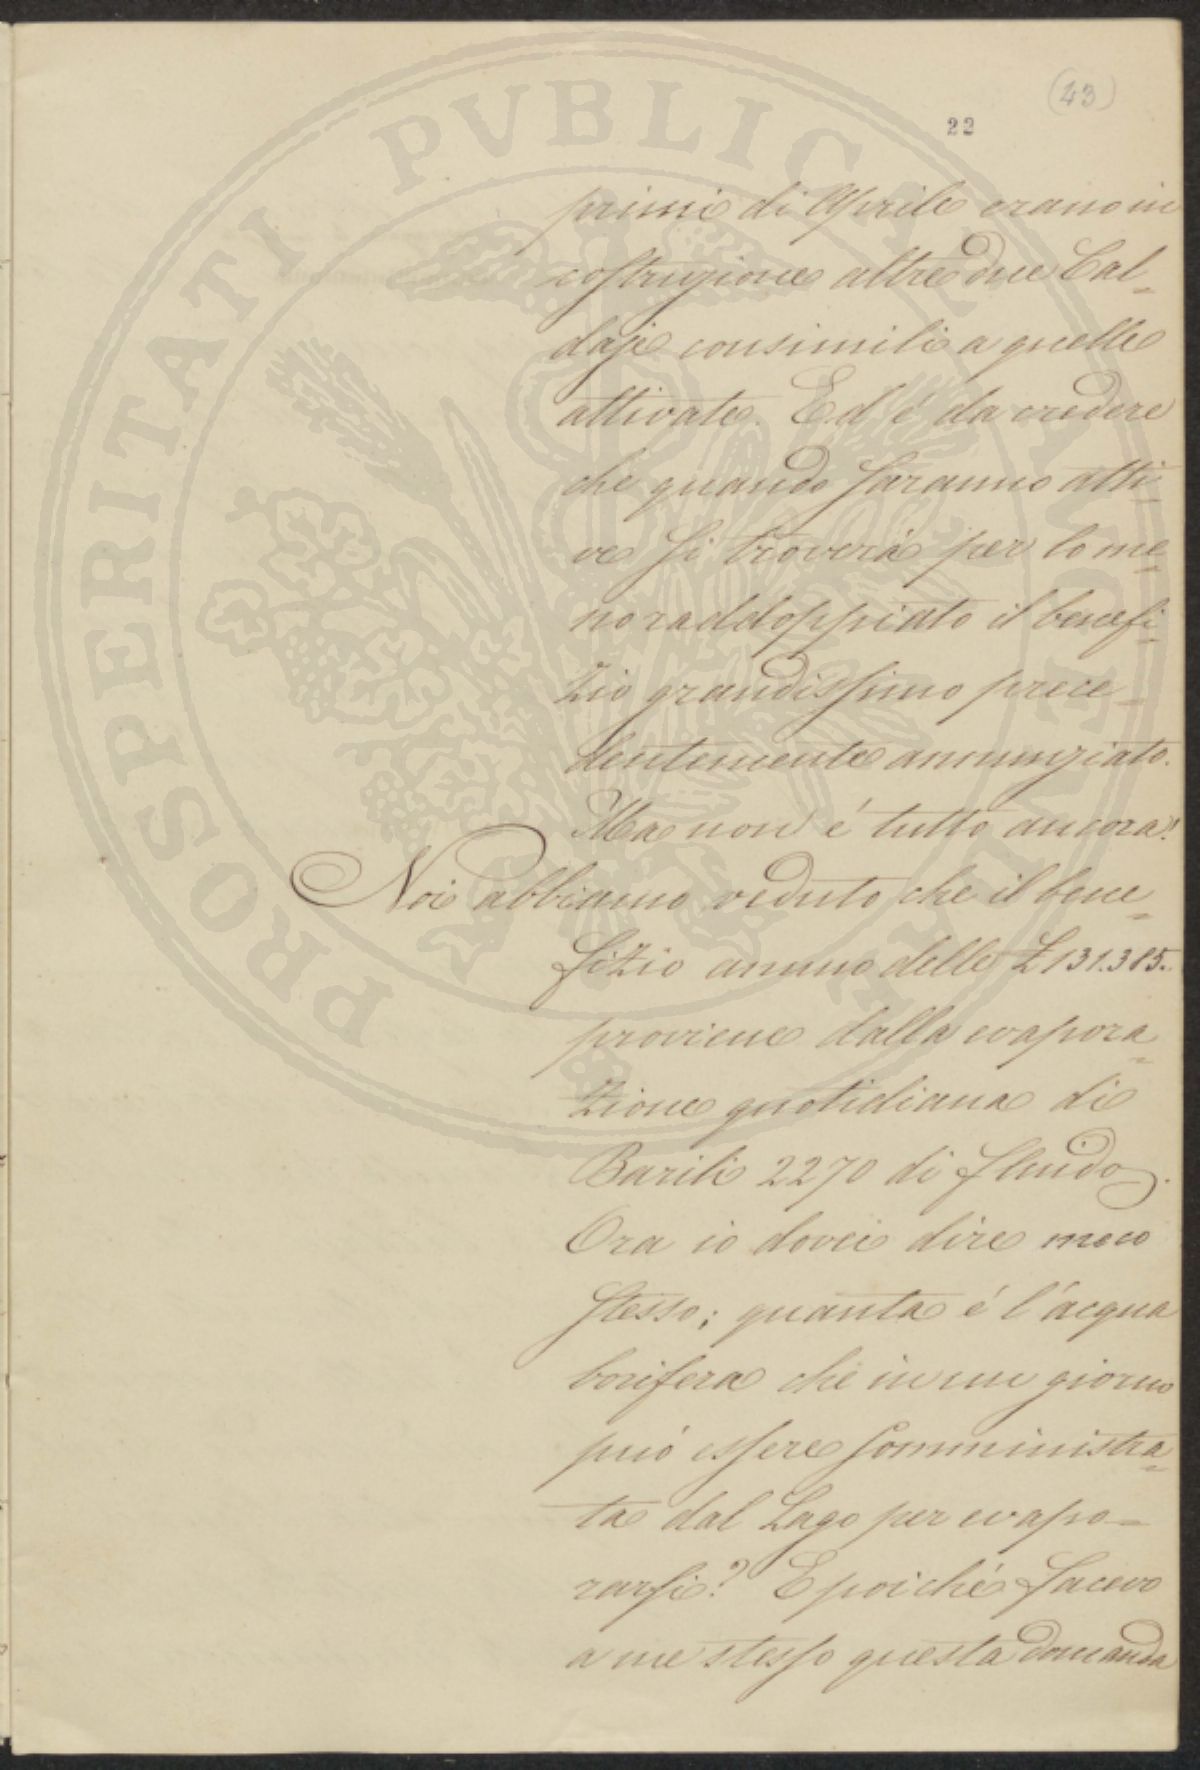 (43)
22
primi di Aprile erano in
costruzione altre due Cal=
daje consimili a quelle
attivate. Ed é da credere
che quando saranno atti=
ve si troverá per lo me=
no raddoppiato il benefi=
zio grandissimo prece=
dentemente annunziato.
Ma non é tutto ancora!
Noi abbiamo veduto che il bene=
fizio annuo delle £ 131.385.
proviene dalla evapora=
zione quotidiana di
Barili 2270 di fluido.
Ora io dovei dire meco
stesso; quanta é l'acqua
borifera che in un giorno
puó essere somministra=
ta dal Lago per evapo=
rarsi? E poiché facevo
a me stesso questa domanda
PROSPERITATI PVBLICAE